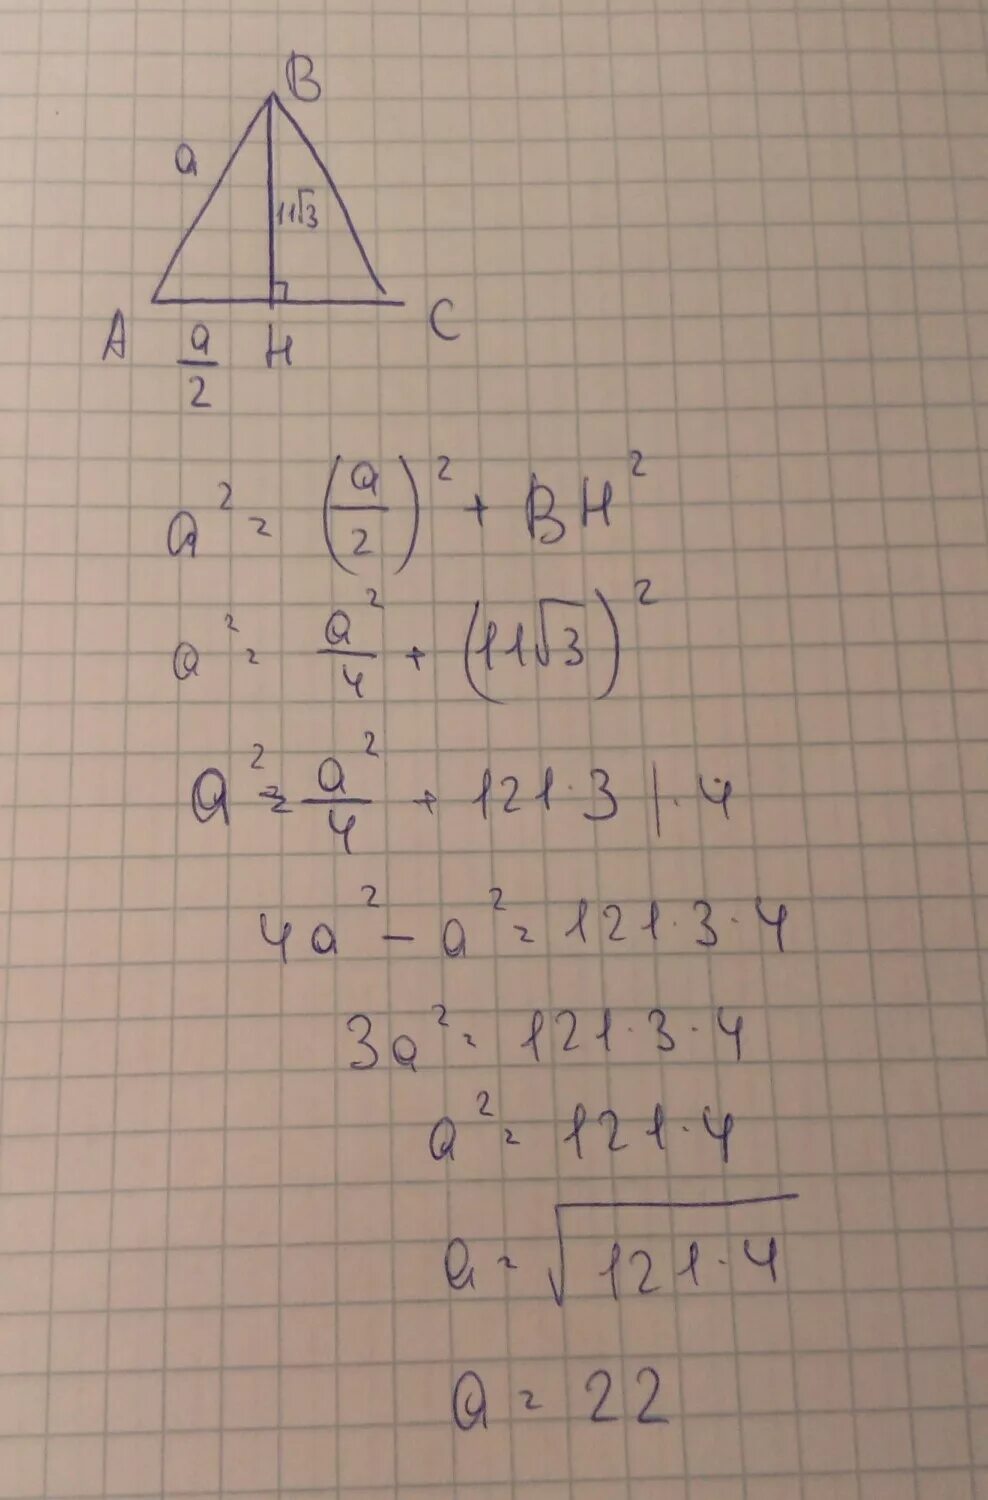 B
a
11√3
A a/2 H C
a² = (a/2)² + BH²
a² = a²/4 + (11√3)²
a² = a²/4 + 121·3 |·4
4a² - a² = 121·3·4
3a² = 121·3·4
a² = 121·4
a = √121·4
a = 22